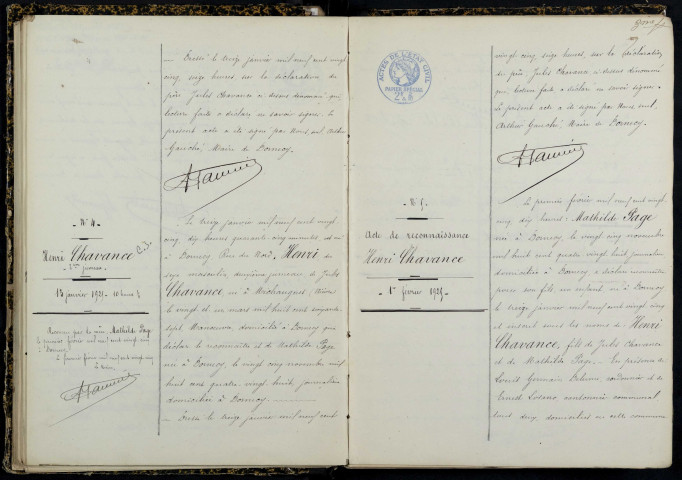 — Dressé le treize janvier mil neuf cent vingt
cinq, seize heures sur la déclaration du
père Jules Chavance ci dessus dénommé qui,
lecture faite a déclaré ne savoir signer. Le
présent acte a été signé par Nous, seul Arthur
Gauché, Maire de Dornecy.
— N° 4 —
Henri Chavance
2ème jumeau.
13 janvier 1925 - 10 heures ¾
Reconnu par la mère Mathilde Page
le premier février mil neuf cent vingt cinq
à Dornecy
Le premier février mil neuf cent vingt cinq
Le Maire,
Le treize janvier mil neuf cent vingt
cinq dix heures quarante cinq minutes est né
à Dornecy Rue du Nord, Henri du
sexe masculin deuxième jumeau, de Jules
Chavance né à
le vingt et un mars mil huit cent soixante
sept Manœuvre, domicilié à Dornecy qui
déclare le reconnaître et de Mathilde Page
née à Dornecy, le vingt cinq novembre mil
huit cent quatre vingt huit journalière
domiciliée à Dornecy
— Dressé le treize janvier mil neuf cent
ACTES DE L'ETAT CIVIL
PAPIER SPECIAL
vingt cinq, seize heures, sur la déclaration
du père, Jules Chavance ci dessus dénommé
qui, lecture faite a déclaré ne savoir signer.
Le présent acte a été signé par Nous seul,
Arthur Gauché, Maire de Dornecy.
— N° 5 —
Acte de reconnaissance
Henri Chavance
— 1er février 1925 —
Le premier février mil neuf cent vingt
cinq, dix heures, Mathilde Page
née à Dornecy, le vingt cinq novembre
mil huit cent quatre vingt huit journalière
domiciliée à Dornecy, a déclaré reconnaître
pour son fils, un enfant né à Dornecy
le treize janvier mil neuf cent vingt cinq
et inscrit sous les noms de Henri
Chavance, fils de Jules Chavance
et de Mathilde Page. — En présence de
Louis Germain cordonnier et de
Ernest cantonnier communal
tous deux, domiciliés en cette commune